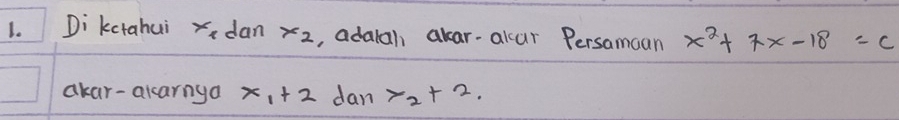 1. Diketahui x₁ dan x₂, adalah akar-akar Persamaan x² + 7x - 18 = c
akar-akarnya x₁ + 2 dan x₂ + 2.